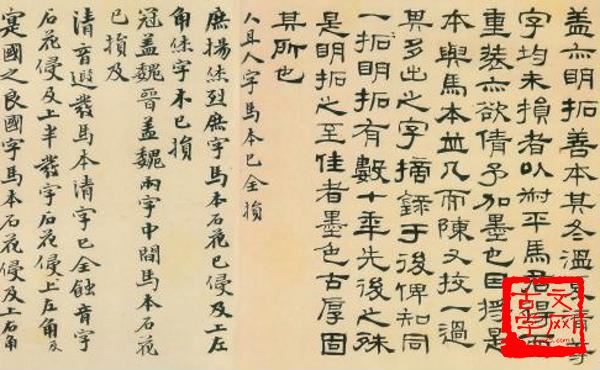 盖亦明拓善本其冬溫夏清等
字均未損者以耐平馬君得
重裝亦欲倩予加墨也因擇是
本與馬本並几而陳又挍一過
異多出之字摘錄于後俾知同
一拓明拓有數十年先後之殊
是明拓之至佳者墨色古厚固
其所也
人且人字馬本已全損
庶揚休烈庶字馬本石花已侵及上左
角休字末已損
冠盖魏晉盖魏兩字中間馬本石花
已損及
清音遐發馬本清字已全蝕音字
石花侵及上半發字石花侵上左角及
寔國之良國字馬本石花侵及上右角
古文学网